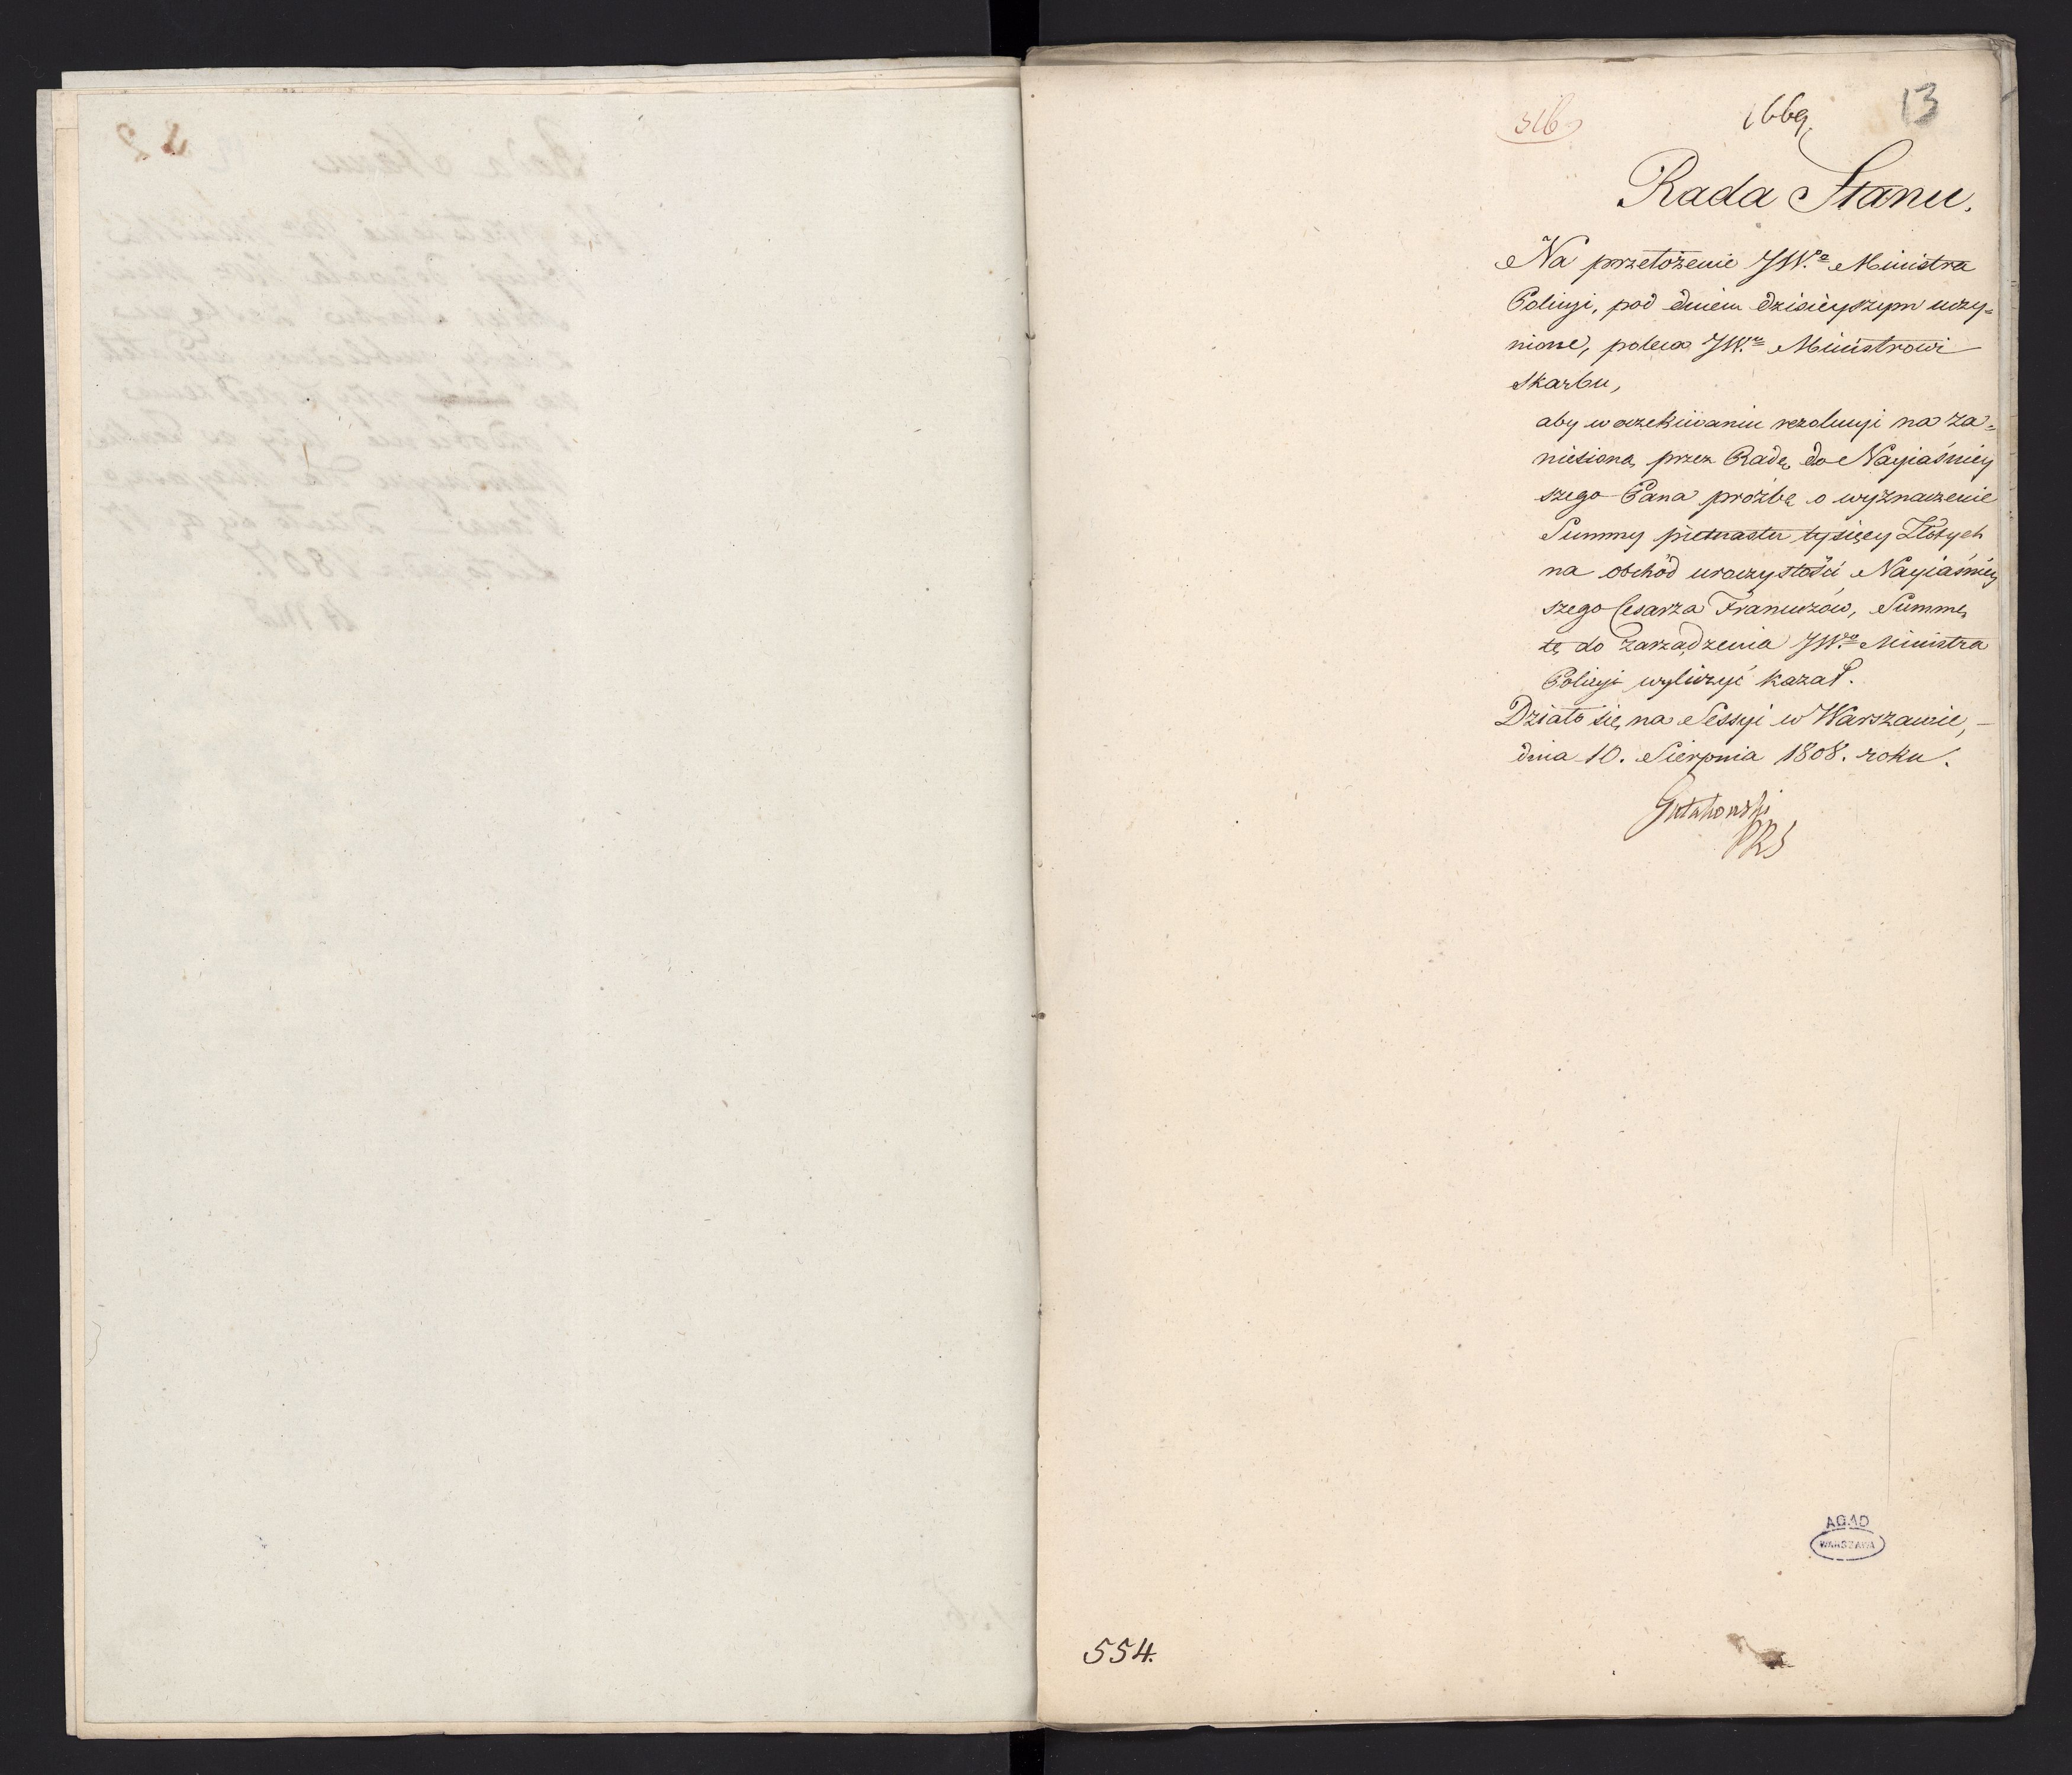 516
1669
13
Rada Stanu.
Na przełożenie JW.º Ministra
Policyi, pod dniem dzisieyszym uczy=
nione, poleca JW.mu Ministrowi
Skarbu,
aby w oczekiwaniu rezolucyi na za=
niesioną przez Radę do Nayiaśniey
szego Pana prożbę o wyznaczenie
Summy pietnastu tysięcy Złotych
na obchód uroczystości Nayiaśniey
szego Cesarza Francuzów, Summę
tę do zarządzenia JW.º Ministra
Policyi wyliczyć kazał.
Działo się na Sessyi w Warszawie, –
dnia 10. Sierpnia 1808. roku.
Gutakowski
PRS
AGAD
WARSZAWA
554.